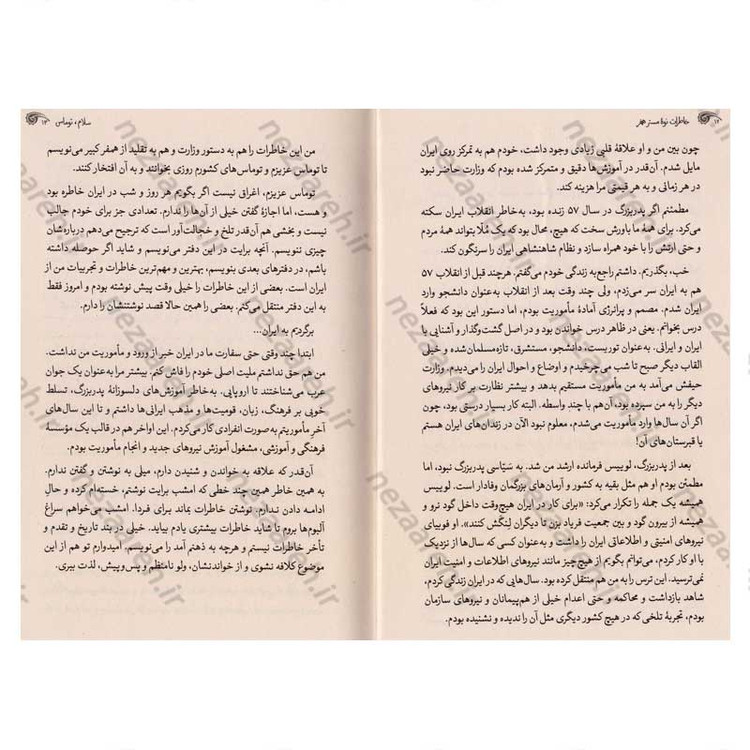 خاطرات نوهٔ مستر همفر
۱۲
چون بین من و او علاقهٔ قلبی زیادی وجود داشت، خودم هم به تمرکز روی ایران
مایل شدم. آن‌قدر در آموزش‌ها دقیق و متمرکز شده بودم که وزارت حاضر نبود
در هر زمانی و به هر قیمتی مرا هزینه کند.
مطمئنم اگر پدربزرگ در سال ۵۷ زنده بود، به‌خاطر انقلاب ایران سکته
می‌کرد. برای همهٔ ما باورش سخت که هیچ، محال بود که یک مُلّا بتواند همهٔ مردم
و حتی ارتش را با خود همراه سازد و نظام شاهنشاهی ایران را سرنگون کند.
خب، بگذریم. داشتم راجع‌به زندگی خودم می‌گفتم. هرچند قبل از انقلاب ۵۷
هم به ایران سر می‌زدم، ولی چند وقت بعد از انقلاب به‌عنوان دانشجو وارد
ایران شدم. مصمم و پرانرژی آمادهٔ مأموریت بودم، اما دستور این بود که فعلاً
درس بخوانم. یعنی در ظاهر درس خواندن بود و در اصل گشت‌وگذار و آشنایی با
ایران و ایرانی. به‌عنوان توریست، دانشجو، مستشرق، تازه‌مسلمان‌شده و خیلی
القاب دیگر صبح تا شب می‌چرخیدم و اوضاع و احوال ایران را می‌دیدم. وزارت
حیفش می‌آمد به من مأموریت مستقیم بدهد و بیشتر نظارت بر کار نیروهای
دیگر را به من سپرده بود، آن‌هم با چند واسطه. البته کار بسیار درستی بود، چون
اگر آن سال‌ها وارد مأموریت می‌شدم، معلوم نبود الآن در زندان‌های ایران هستم
یا قبرستان‌های آن!
بعد از پدربزرگ، لوییس فرمانده ارشد من شد. به سیّاسی پدربزرگ نبود، اما
مطمئن بودم او هم مثل بقیه به کشور و آرمان‌های بزرگمان وفادار است. لوییس
همیشه یک جمله را تکرار می‌کرد: «برای کار در ایران هیچ‌وقت داخل گود نرو و
همیشه از بیرون گود و بین جمعیت فریاد بزن تا دیگران لِنگش کنند». او فوبیای
نیروهای امنیتی و اطلاعاتی ایران را داشت و به‌عنوان کسی که سال‌ها از نزدیک
با او کار کردم، می‌توانم بگویم از هیچ‌چیز مانند نیروهای اطلاعات و امنیت ایران
نمی‌ترسید. این ترس به من هم منتقل کرده بود. سال‌هایی که در ایران زندگی کردم،
شاهد بازداشت و محاکمه و حتی اعدام خیلی از هم‌پیمانان و نیروهای سازمان
بودم، تجربهٔ تلخی که در هیچ کشور دیگری مثل آن را ندیده و نشنیده بودم.
سلام، توماس
۱۳
من این خاطرات را هم به دستور وزارت و هم به تقلید از همفر کبیر می‌نویسم
تا توماس عزیزم و توماس‌های کشورم روزی بخوانند و به آن افتخار کنند.
توماس عزیزم، اغراقی نیست اگر بگویم هر روز و شب در ایران خاطره بود
و هست، اما اجازهٔ گفتن خیلی از آن‌ها را ندارم. تعدادی جز برای خودم جالب
نیست و بخشی هم آن‌قدر تلخ و خجالت‌آور است که ترجیح می‌دهم درباره‌شان
چیزی ننویسم. آنچه برایت در این دفتر می‌نویسم و شاید اگر حوصله داشته
باشم، در دفترهای بعدی بنویسم، بهترین و مهم‌ترین خاطرات و تجربیات من از
ایران است. بعضی از این خاطرات را خیلی وقت پیش نوشته بودم و امروز فقط
به این دفتر منتقل می‌کنم. بعضی را همین حالا قصد نوشتنشان را دارم.
برگردیم به ایران...
ابتدا چند وقتی حتی سفارت ما در ایران خبر از ورود و مأموریت من نداشت.
من هم حق نداشتم ملیت اصلی خودم را فاش کنم. بیشتر مرا به‌عنوان یک جوان
عرب می‌شناختند تا اروپایی. به‌خاطر آموزش‌های دلسوزانهٔ پدربزرگ، تسلط
خوبی بر فرهنگ، زبان، قومیت‌ها و مذهب ایرانی‌ها داشتم و تا این سال‌های
آخر مأموریتم به‌صورت انفرادی کار می‌کردم. این اواخر هم در قالب یک مؤسسهٔ
فرهنگی و آموزشی، مشغول آموزش نیروهای جدید و انجام مأموریت بودم.
آن‌قدر که علاقه به خواندن و شنیدن دارم، میلی به نوشتن و گفتن ندارم.
به همین خاطر همین چند خطی که امشب برایت نوشتم، خسته‌ام کرده و حالِ
ادامه دادن ندارم. نوشتن خاطرات بماند برای فردا. امشب می‌خواهم سراغ
آلبوم‌ها بروم تا شاید خاطرات بیشتری یادم بیاید. خیلی در بند تاریخ و تقدم و
تأخر خاطرات نیستم و هرچه به ذهنم آمد را می‌نویسم. امیدوارم تو هم از این
موضوع کلافه نشوی و از خواندنشان، ولو نامنظم و پس‌وپیش، لذت ببری.
nezaareh.ir